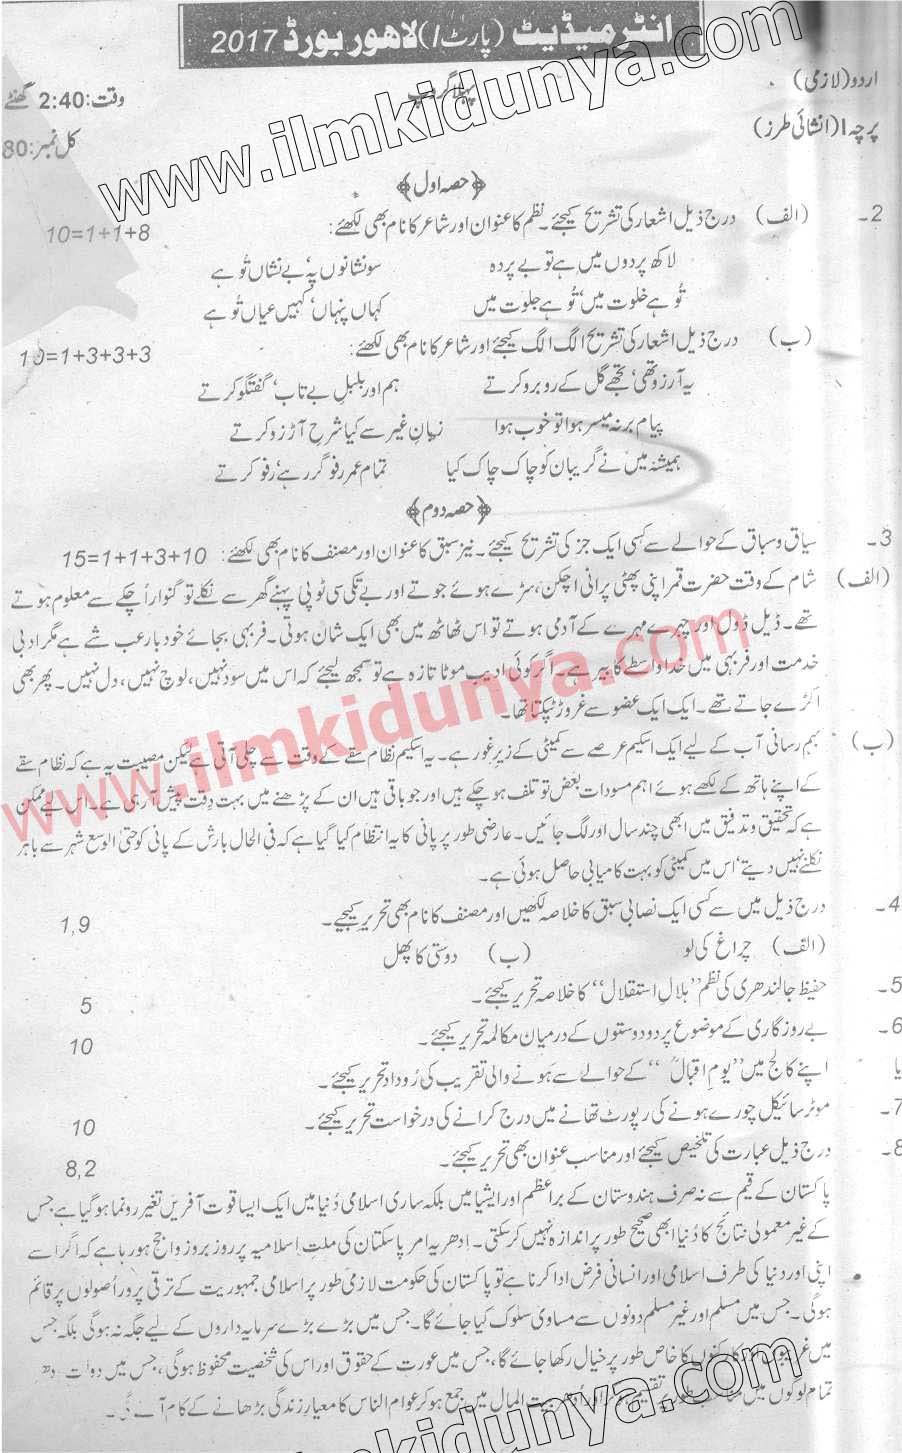 انٹرمیڈیٹ (پارٹ I) لاہور بورڈ 2017
اردو (لازمی)
پہلا گروپ
وقت: 2:40 گھنٹے
پرچہ I (انشائی طرز)
کل نمبر: 80
www.ilmkidunya.com
﴿حصہ اول﴾
2۔ (الف) درج ذیل اشعار کی تشریح کیجئے۔ نظم کا عنوان اور شاعر کا نام بھی لکھئے: 10=1+1+8
لاکھ پردوں میں ہے تو بے پردہ سو نشانوں پہ‘ بے نشاں تُو ہے
تُو ہے خلوت میں‘ تُو ہے جلوت میں کہاں پنہاں‘ کہیں عیاں تُو ہے
(ب) درج ذیل اشعار کی تشریح الگ الگ کیجئے اور شاعر کا نام بھی لکھئے: 10=1+3+3+3
یہ آرزو تھی‘ تجھے گل کے روبرو کرتے ہم اور بلبلِ بے تاب‘ گفتگو کرتے
پیام بر نہ میسر ہوا تو خوب ہوا زبانِ غیر سے کیا شرحِ آرزو کرتے
ہمیشہ میں نے گریبان کو چاک چاک کیا تمام عمر رفو گر رہے‘ رفو کرتے
﴿حصہ دوم﴾
3۔ سیاق و سباق کے حوالے سے کسی ایک جز کی تشریح کیجئے۔ نیز سبق کا عنوان اور مصنف کا نام بھی لکھئے: 15=1+1+3+10
(الف) شام کے وقت حضرت قمر اپنی پھٹی پرانی اچکن، سڑے ہوئے جوتے اور بے تکی سی ٹوپی پہنے گھر سے نکلے تو گنوار اُچکے سے معلوم ہوتے
تھے۔ ڈیل ڈول اور چہرے مہرے کے آدمی ہوتے تو اس ٹھاٹھ میں بھی ایک شان ہوتی۔ فربہی بجائے خود بارعب شے ہے مگر ادبی
خدمت اور فربہی میں خدا واسطے کا بیر ہے۔ اگر کوئی ادیب موٹا تازہ ہے تو سمجھ لیجئے کہ اس میں سود نہیں، لوچ نہیں، دل نہیں۔ پھر بھی
اکڑے جاتے تھے۔ ایک ایک عضو سے غرور ٹپکتا تھا۔
www.ilmkidunya.com
(ب) بہم رسانی آب کے لیے ایک اسکیم عرصے سے کمیٹی کے زیر غور ہے۔ یہ اسکیم نظام سقے کے وقت سے چلی آتی ہے لیکن مصیبت یہ ہے کہ نظام سقے
کے اپنے ہاتھ کے لکھے ہوئے اہم مسودات بعض تو تلف ہو چکے ہیں اور جو باقی ہیں ان کے پڑھنے میں بہت دِقت پیش آ رہی ہے۔ اس لیے ممکن
ہے کہ تحقیق و تدقیق میں ابھی چند سال اور لگ جائیں۔ عارضی طور پر پانی کا یہ انتظام کیا گیا ہے کہ فی الحال بارش کے پانی کو حتیٰ الوسع شہر سے باہر
نکلنے نہیں دیتے‘ اس میں کمیٹی کو بہت کامیابی حاصل ہوئی ہے۔
4۔ درج ذیل میں سے کسی ایک نصابی سبق کا خلاصہ لکھیں اور مصنف کا نام بھی تحریر کیجیے۔ 1,9
(الف) چراغ کی لو (ب) دوستی کا پھل
5۔ حفیظ جالندھری کی نظم ’’ہلالِ استقلال‘‘ کا خلاصہ تحریر کیجئے۔ 5
6۔ بے روزگاری کے موضوع پر دو دوستوں کے درمیان مکالمہ تحریر کیجئے۔ 10
یا اپنے کالج میں ’’یومِ اقبالؒ‘‘ کے حوالے سے ہونے والی تقریب کی رُوداد تحریر کیجئے۔
7۔ موٹر سائیکل چورے ہونے کی رپورٹ تھانے میں درج کرانے کی درخواست تحریر کیجئے۔ 10
8۔ درج ذیل عبارت کی تلخیص کیجئے اور مناسب عنوان بھی تحریر کیجئے۔ 8,2
پاکستان کے قیم سے نہ صرف ہندوستان کے براعظم اور ایشیا میں بلکہ ساری اسلامی دُنیا میں ایک ایسا قوت آفریں تغیر رونما ہو گیا ہے جس
کے غیر معمولی نتائج کا دُنیا ابھی صحیح طور پر اندازہ نہیں کر سکتی۔ اِدھر یہ امر پاسکتان کی ملتِ اِسلامیہ پر روز بروز واجح ہو رہا ہے کہ اگر اسے
اپنی اور دنیا کی طرف اسلامی اور انسانی فرض ادا کرنا ہے تو پاکستان کی حکومت لازمی طور پر اسلامی جمہوریت کے ترقی پرور اُصولوں پر قائم
ہوگی۔ جس میں مسلم اور غیر مسلم دونوں سے مساوی سلوک کیا جائے گا۔ جس میں بڑے بڑے سرمایہ داروں کے لیے جگہ نہ ہوگی بلکہ جس
میں غریبوں اور کارکنوں کا خاص طور پر خیال رکھا جائے گا، جس میں عورت کے حقوق اور اس کی شخصیت محفوظ ہوگی، جس میں دولت
تمام لوگوں میں مناسب طور پر تقسیم ہوگی اور اُدھر بیت المال میں جمع ہو کر عوام الناس کا معیارِ زندگی بڑھانے کے کام آئے گی۔
www.ilmkidunya.com